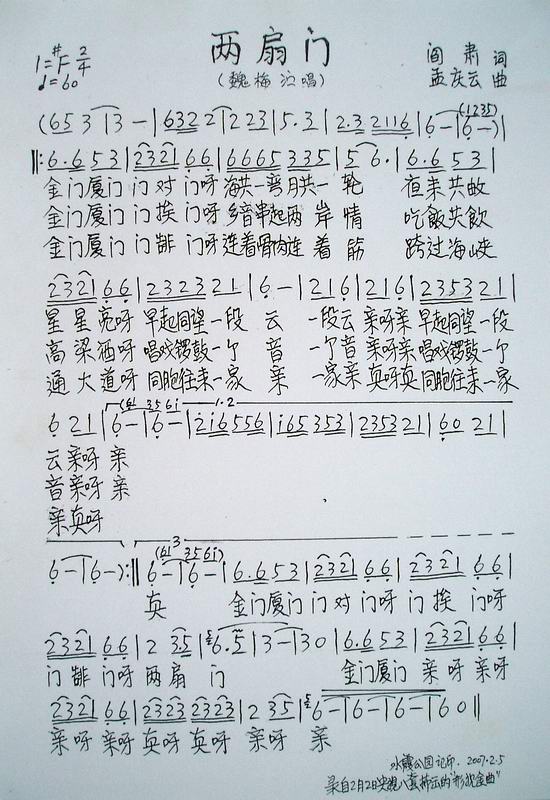 两扇门
1=#F 2/4
♩=60
(魏梅 唱)
阎肃词
孟庆云曲
(65 3 | 3 - | 632 2 | 2 23 | 5. 3 | 2.3 2116 | 6 - | 6 -) |
(1235)
||: 6.6 53 | 2321 66 | 6665 335 | 5 6. | 6.6 53 |
金门厦门 门对门呀 海共一弯月共一轮 夜来共数
金门厦门 门挨门呀 乡音串起两岸情 吃飯共飲
金门厦门 门排门呀 连着骨肉连着筋 跨过海峡
2321 66 | 2323 21 | 6 - | 216 | 216 | 2353 21 |
星星亮呀 早起同望一段云 一段云 亲呀亲 早起同望一段
高梁酒呀 唱戏锣鼓一个音 一个音 亲呀亲 唱戏锣鼓一个
通大道呀 同胞往来一家亲 一家亲 真呀真 同胞往来一家
(61 356i) 1·2
6 21 | 6 - | 6 - | 2i6556 | i65 353 | 2353 21 | 60 21 |
云亲呀亲
音亲呀亲
亲真呀
3
(61 356i)
6 - | 6 - ) :|| 6 - | 6 - | 6.6 53 | 2321 66 | 2321 66 |
真 金门厦门 门对门呀 门挨门呀
2321 66 | 2 35 | 6. 5 | 3 - | 3 0 | 6.6 53 | 2321 66 |
门排门呀 两扇门 金门厦门 亲呀亲呀
2321 66 | 2323 2323 | 2 35 | 6 - | 6 - | 6 - | 6 0 ||
亲呀亲呀 真呀真呀 亲呀亲
公园记印. 2007.2.5
录自2月2日央视八套